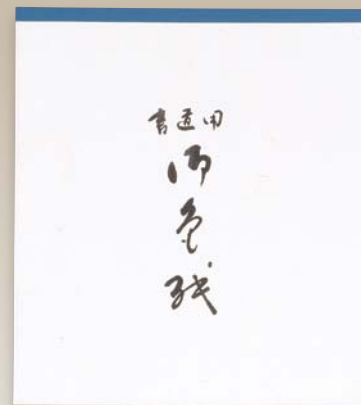 書道用
御色紙